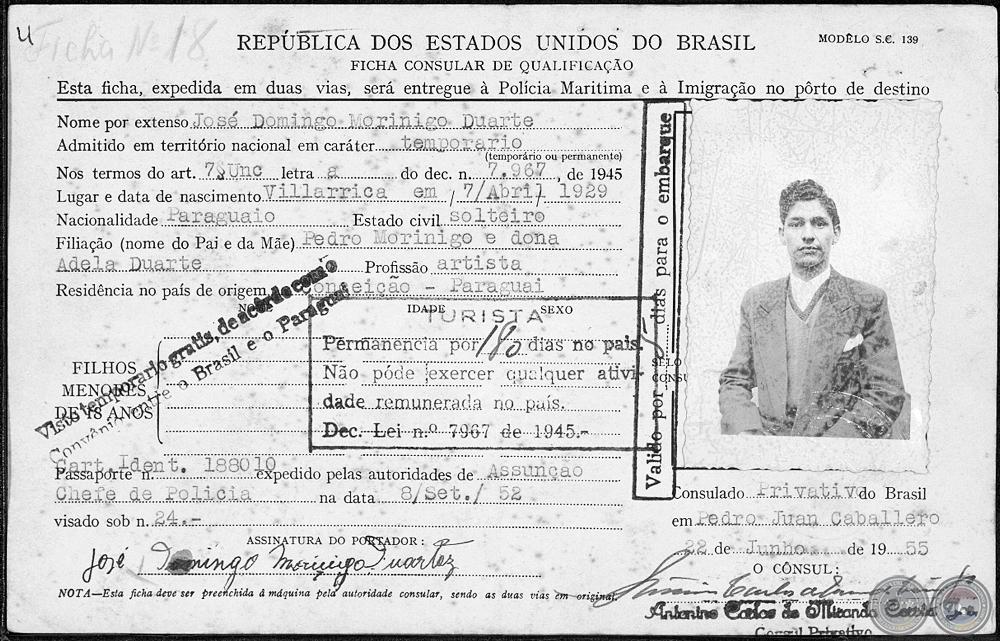 4
Ficha Nº 18
REPÚBLICA DOS ESTADOS UNIDOS DO BRASIL
MODÊLO S.C. 139
FICHA CONSULAR DE QUALIFICAÇÃO
Esta ficha, expedida em duas vias, será entregue à Polícia Maritima e à Imigração no pôrto de destino
Nome por extenso José Domingo Morinigo Duarte
Admitido em território nacional em caráter temporario
(temporário ou permanente)
Nos termos do art. 7 Unc letra a do dec. n. 7.967, de 1945
Lugar e data de nascimento Villarrica em / 7/Abril 1929
Nacionalidade Paraguaio Estado civil solteiro
Filiação (nome do Pai e da Mãe) Pedro Morinigo e dona
Adela Duarte Profissão artista
Residência no país de origem Conceição - Paraguai
IDADE SEXO
FILHOS
MENORES
DE 18 ANOS
Visto temporario gratis, de acôrdo com o
Convênio entre o Brasil e o Paraguai
TURISTA
Permanencia por 180 dias no pais.
Não póde exercer qualquer ativi-
dade remunerada no país.
Dec. Lei n.º 7967 de 1945.-
Valido por dias para o embarque
SELO
CONSU
Cart. Ident. 188010
Passaporte n. expedido pelas autoridades de Assunção
Chefe de Policia na data 8/Set./ 52
visado sob n. 24.-
Consulado Privativo do Brasil
em Pedro Juan Caballero
22 de Junho de 1955
ASSINATURA DO PORTADOR:
José Domingo Morinigo Duartez
O CÔNSUL:
Antonino Carlos de Miranda Corrêa
Consul Privativo
NOTA—Esta ficha deve ser preenchida à máquina pela autoridade consular, sendo as duas vias em original.